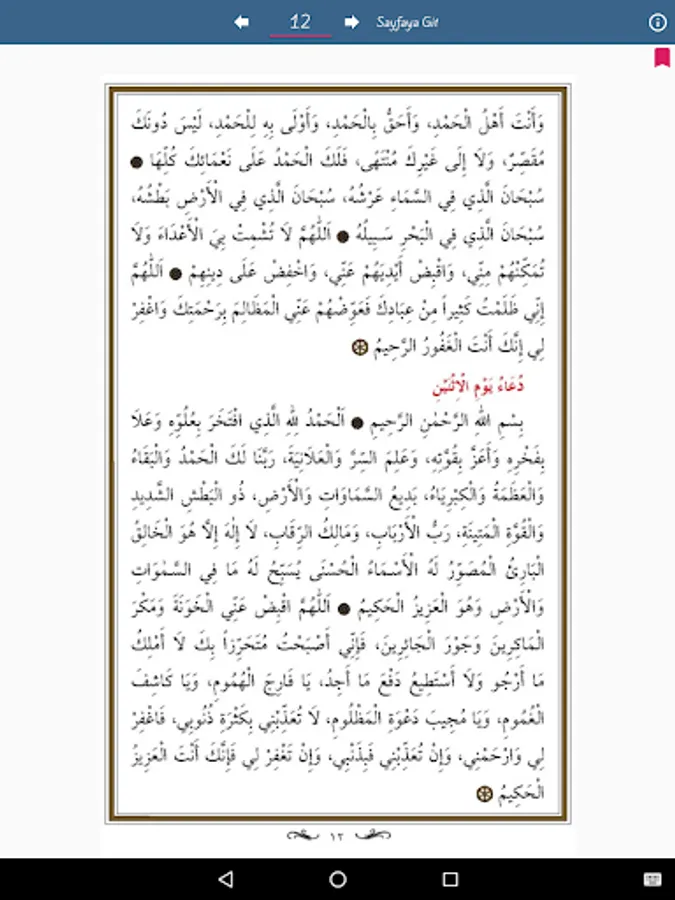 12
Sayfaya Git
وَأَنْتَ أَهْلُ الْحَمْدِ، وَأَحَقُّ بِالْحَمْدِ، وَأَوْلَى بِهِ لِلْحَمْدِ، لَيْسَ دُونَكَ
مُقَصِّرٌ، وَلَا إِلَى غَيْرِكَ مُنْتَهًى، فَلَكَ الْحَمْدُ عَلَى نَعْمَائِكَ كُلِّهَا
سُبْحَانَ الَّذِي فِي السَّمَاءِ عَرْشُهُ، سُبْحَانَ الَّذِي فِي الْأَرْضِ بَطْشُهُ،
سُبْحَانَ الَّذِي فِي الْبَحْرِ سَبِيلُهُ اَللّٰهُمَّ لَا تُشْمِتْ بِيَ الْأَعْدَاءَ وَلَا
تُمَكِّنْهُمْ مِنِّي، وَاقْبِضْ أَيْدِيَهُمْ عَنِّي، وَاخْفِضْ عَلَى دِينِهِمْ اَللّٰهُمَّ
إِنِّي ظَلَمْتُ كَثِيراً مِنْ عِبَادِكَ فَعَوِّضْهُمْ عَنِّي الْمَظَالِمَ بِرَحْمَتِكَ وَاغْفِرْ
لِي إِنَّكَ أَنْتَ الْغَفُورُ الرَّحِيمُ
دُعَاءُ يَوْمِ الْاِثْنَيْنِ
بِسْمِ اللهِ الرَّحْمٰنِ الرَّحِيمِ اَلْحَمْدُ لِلّٰهِ الَّذِي افْتَخَرَ بِعُلُوِّهِ وَعَلَا
بِفَخْرِهِ وَأَعَزَّ بِقُوَّتِهِ، وَعَلِمَ السِّرَّ وَالْعَلَانِيَةَ، رَبَّنَا لَكَ الْحَمْدُ وَالْبَقَاءُ
وَالْعَظَمَةُ وَالْكِبْرِيَاءُ، بَدِيعُ السَّمَاوَاتِ وَالْأَرْضِ، ذُو الْبَطْشِ الشَّدِيدِ
وَالْقُوَّةِ الْمَتِينَةِ، رَبُّ الْأَرْبَابِ، وَمَالِكُ الرِّقَابِ، لَا إِلٰهَ إِلَّا هُوَ الْخَالِقُ
الْبَارِئُ الْمُصَوِّرُ لَهُ الْأَسْمَاءُ الْحُسْنَى يُسَبِّحُ لَهُ مَا فِي السَّمٰوَاتِ
وَالْأَرْضِ وَهُوَ الْعَزِيزُ الْحَكِيمُ اَللّٰهُمَّ اقْبِضْ عَنِّي الْخَوَنَةَ وَمَكْرَ
الْمَاكِرِينَ وَجَوْرَ الْجَائِرِينَ، فَإِنِّي أَصْبَحْتُ مُتَحَرِّزاً بِكَ لَا أَمْلِكُ
مَا أَرْجُو وَلَا أَسْتَطِيعُ دَفْعَ مَا أَجِدُ، يَا فَارِجَ الْهُمُومِ، وَيَا كَاشِفَ
الْغُمُومِ، وَيَا مُجِيبَ دَعْوَةِ الْمَظْلُومِ، لَا تُعَذِّبْنِي بِكَثْرَةِ ذُنُوبِي، فَاغْفِرْ
لِي وَارْحَمْنِي، وَإِنْ تُعَذِّبْنِي فَبِذَنْبِي، وَإِنْ تَغْفِرْ لِي فَإِنَّكَ أَنْتَ الْعَزِيزُ
الْحَكِيمُ
١٢